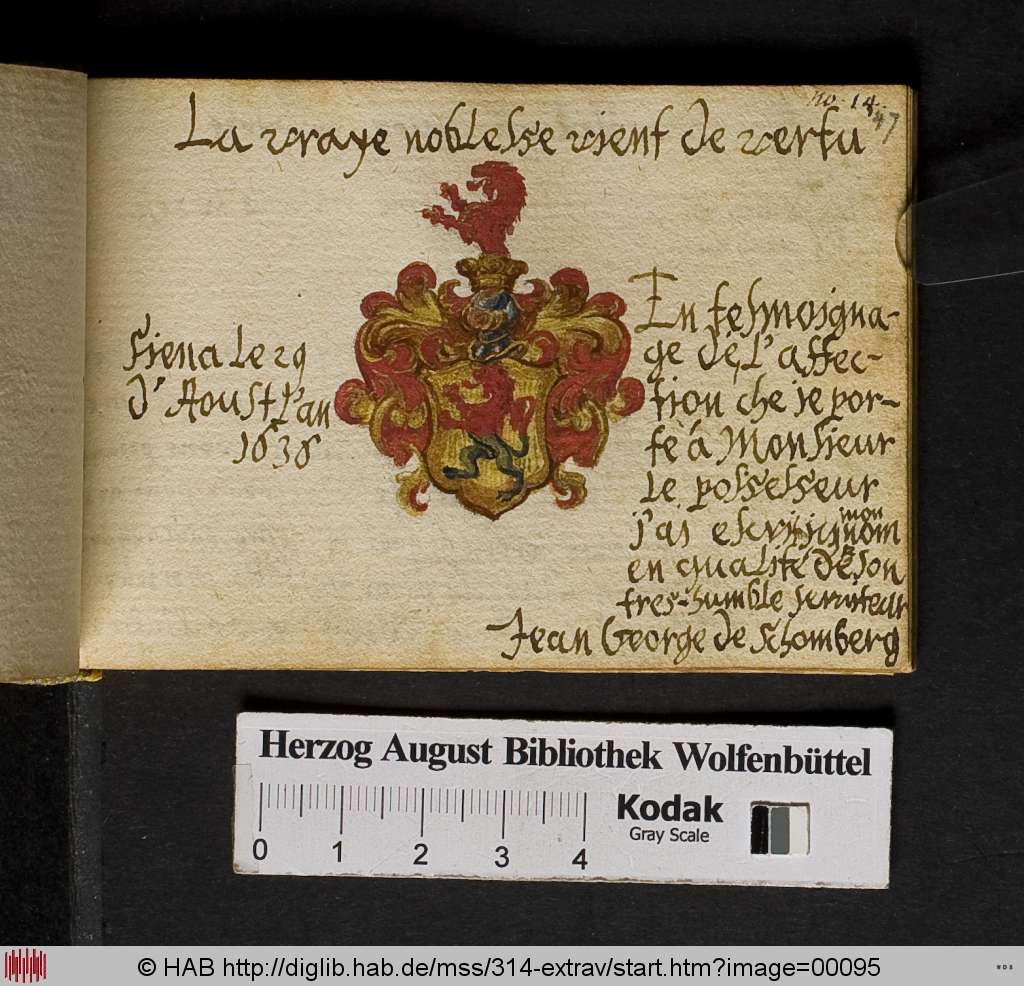 No. 14.
47
La vraye noblesse vient de vertu
Siena le 29
d' Aoust l'an
1636
En tesmoigna-
ge de l'affec-
tion che je por-
te á Monsieur
le possesseur
j'ai escrit ici mon nom
en qualité de son
tres-humble serviteur
Jean George de Schomberg
Herzog August Bibliothek Wolfenbüttel
Kodak
Gray Scale
0 1 2 3 4
© HAB http://diglib.hab.de/mss/314-extrav/start.htm?image=00095
WDB